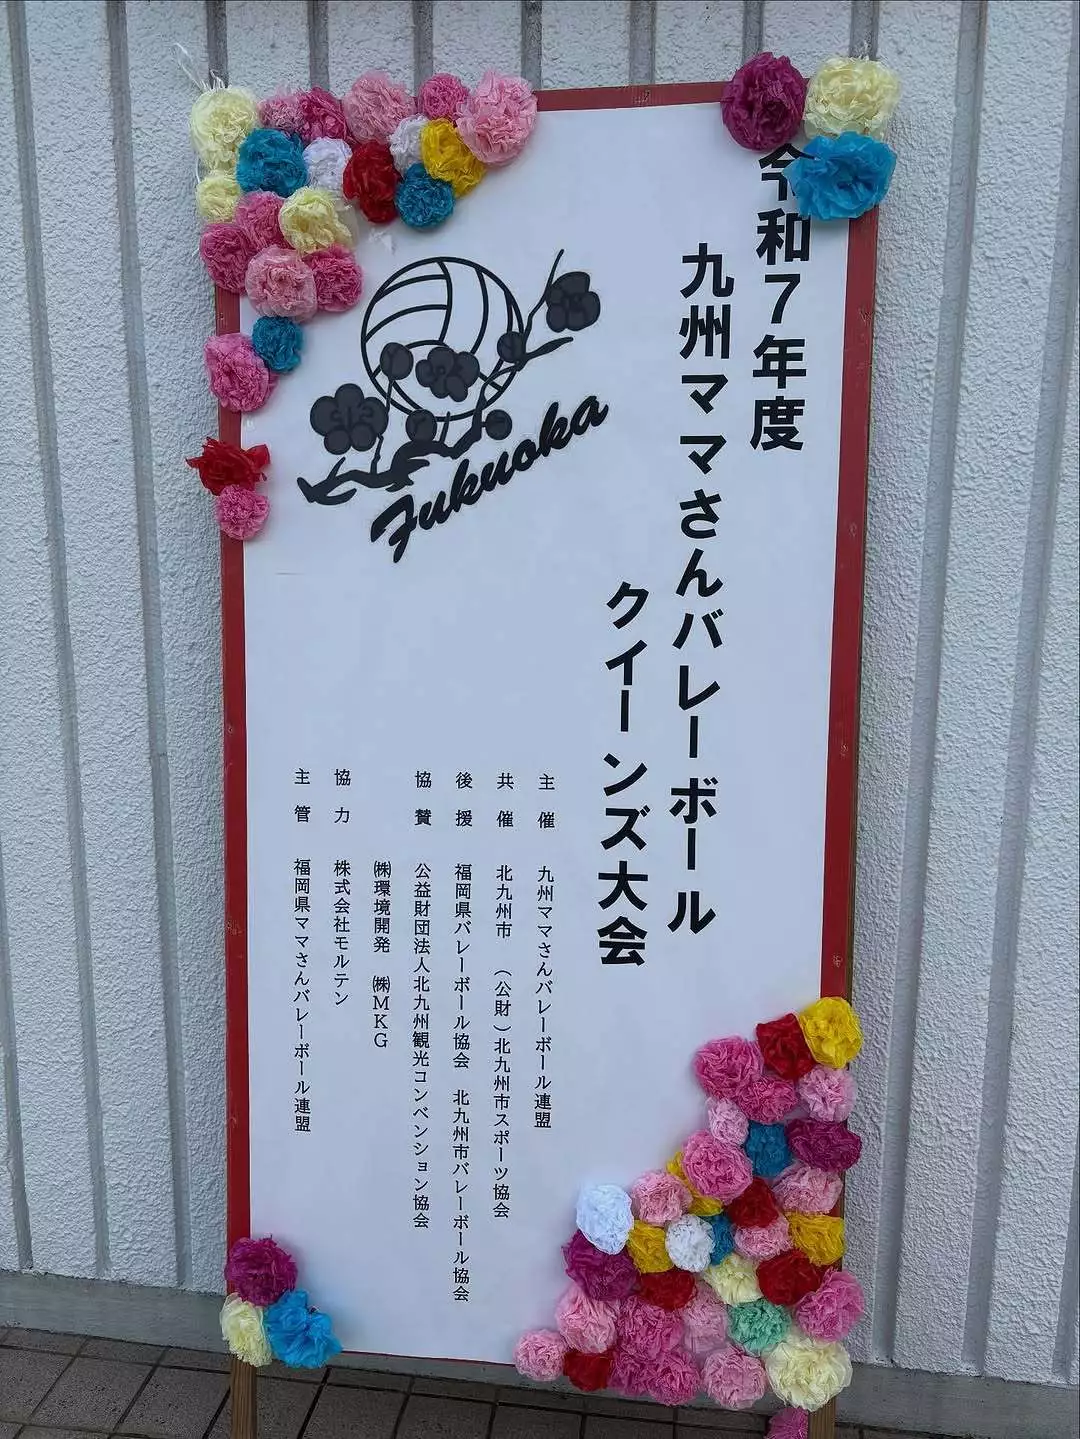 令和7年度
九州ママさんバレーボール
クイーンズ大会
Fukuoka
主催 九州ママさんバレーボール連盟
共催 北九州市 (公財)北九州市スポーツ協会
後援 福岡県バレーボール協会 北九州市バレーボール協会
協賛 公益財団法人北九州観光コンベンション協会
㈱環境開発 ㈱MKG
協力 株式会社モルテン
主管 福岡県ママさんバレーボール連盟